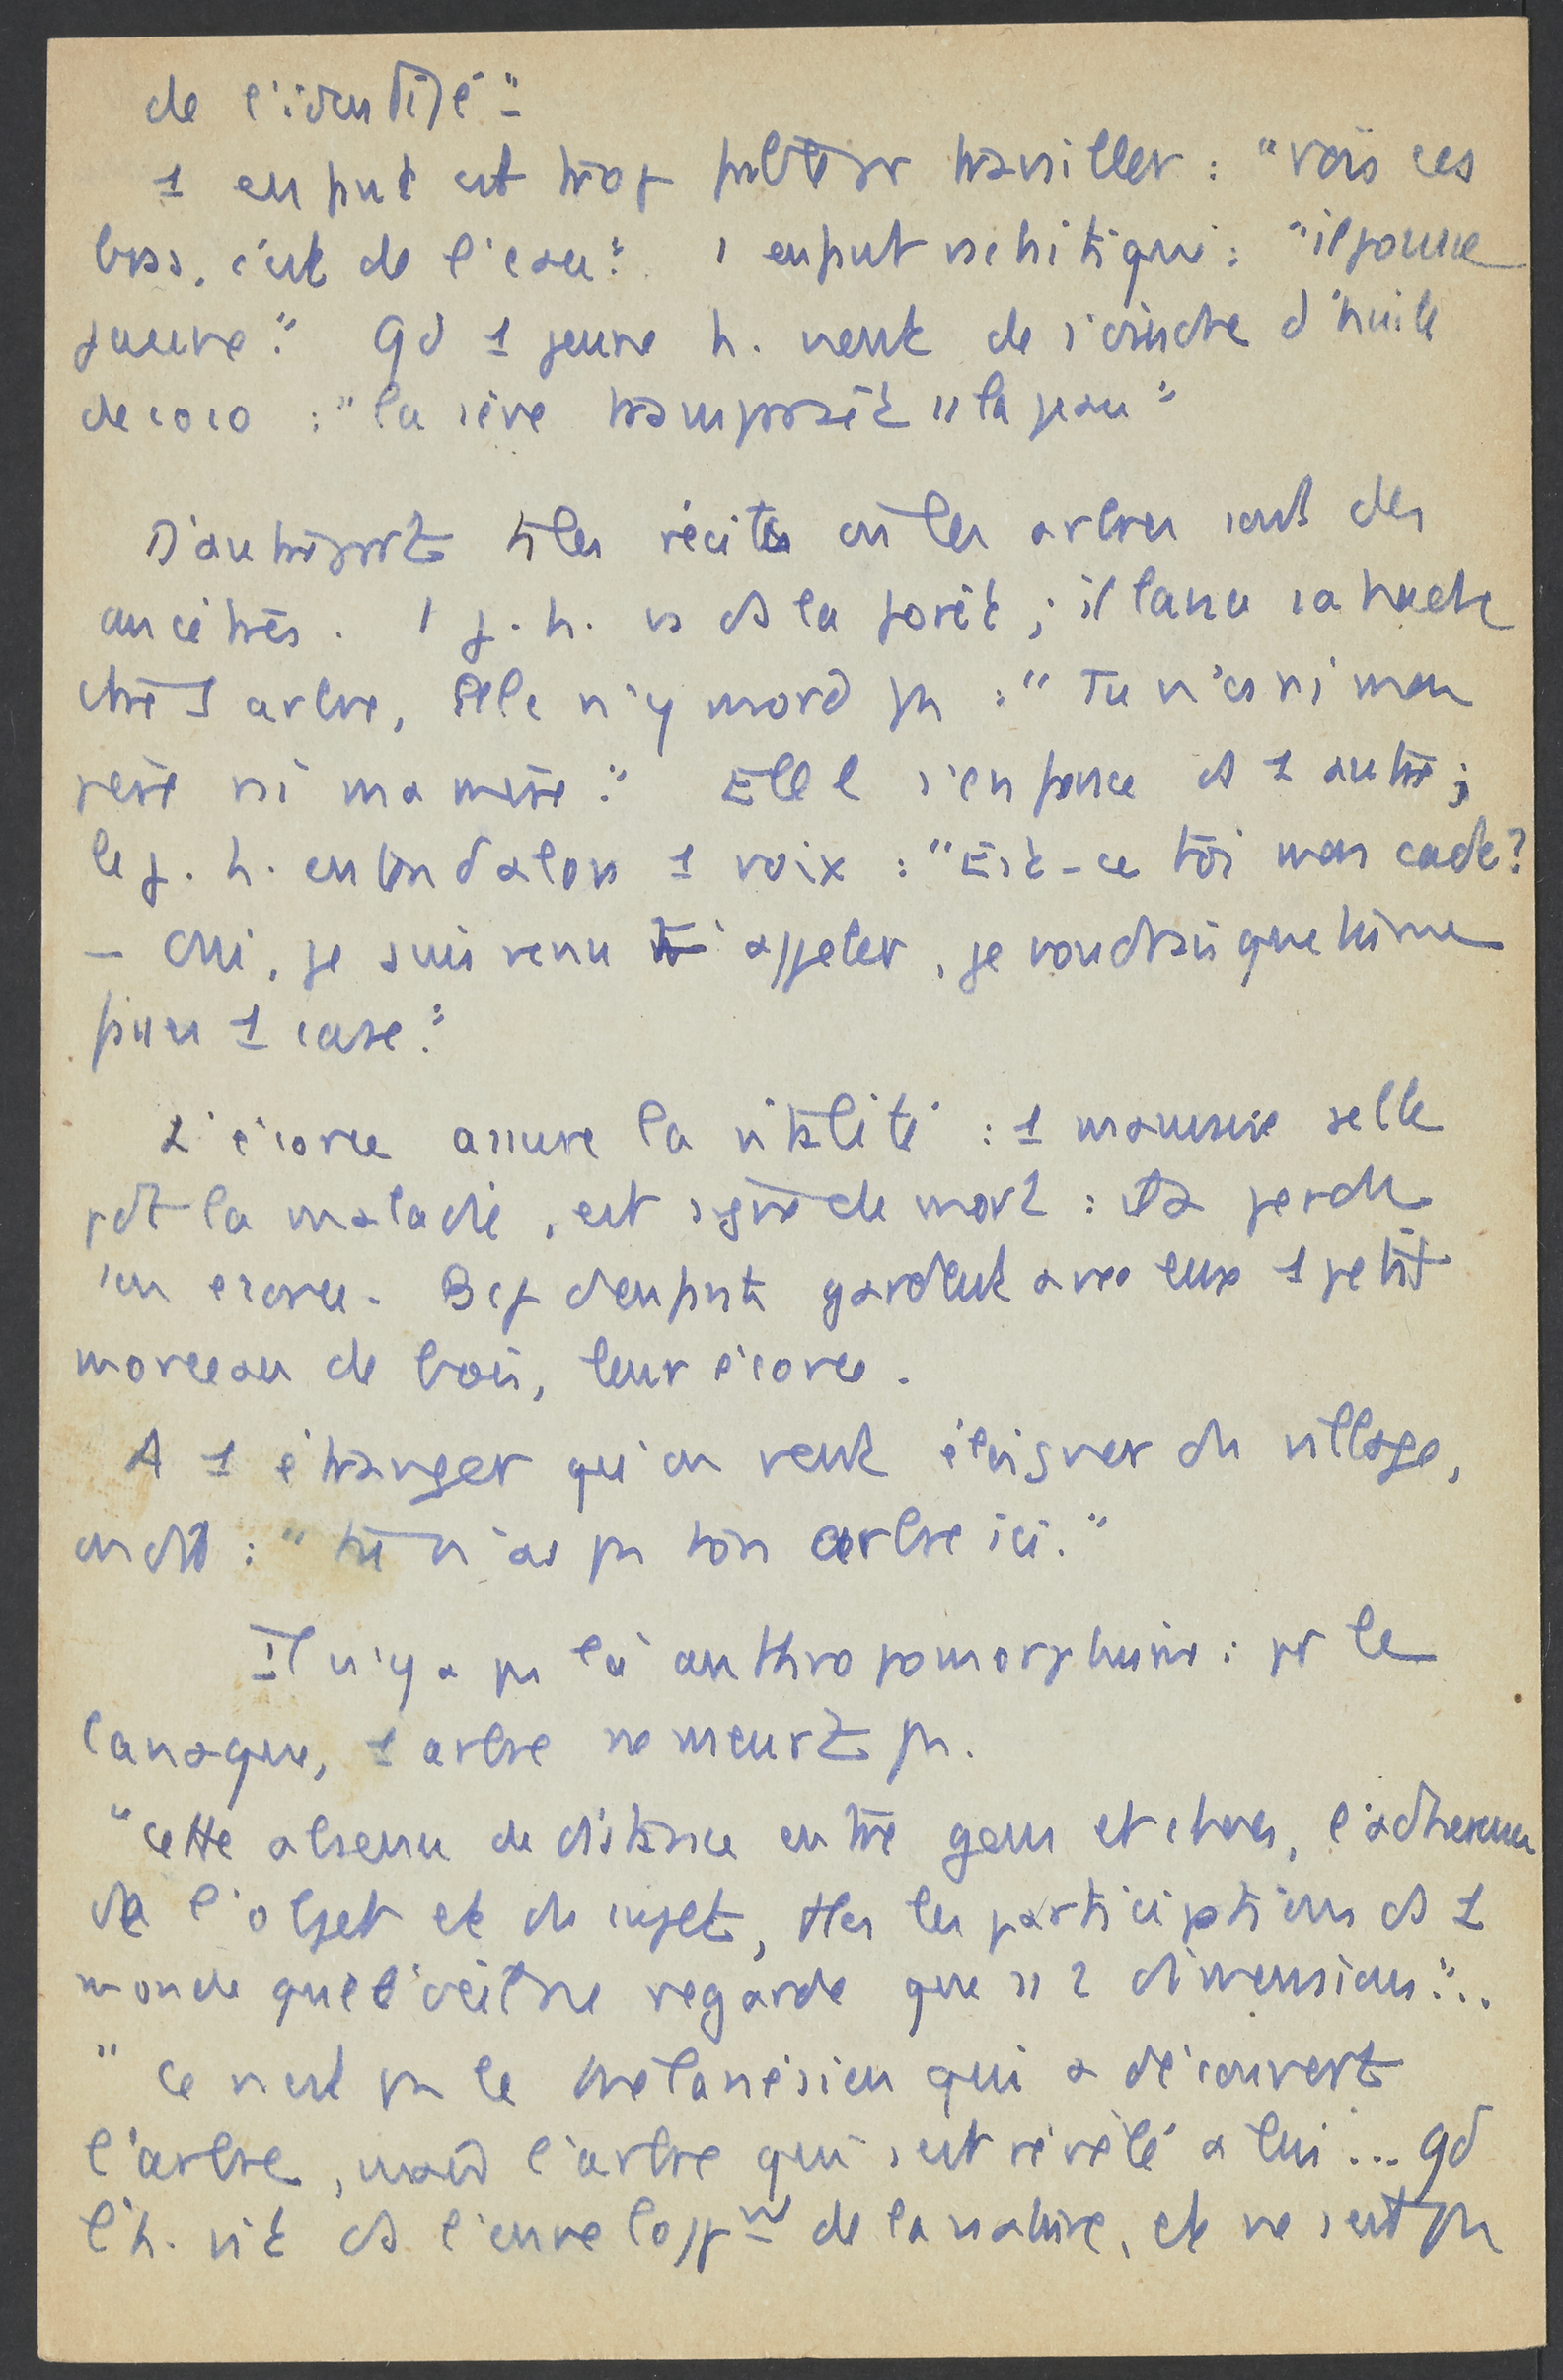 de l'identité"-
1 enfant est trop faible pr travailler : "vois ces
bras, c'est de l'eau". 1 enfant rachitique : "il pousse
jaune". Qd 1 jeune h. vient de s'oindre d'huile
de coco : "la sève transparaît ss la peau"

D'autre part ts les récits où les arbres sont des
ancêtres. 1 j. h. va ds la forêt ; il lance sa hache
ctre 1 arbre, elle n'y mord pas : "Tu n'es ni mon
père ni ma mère". Elle s'enfonce ds 1 autre ;
le j. h. entend alors 1 voix : "Est-ce toi mon cadet ?
- Oui, je suis venu t'appeler, je voudrais que tu me
fisses 1 case".

L'écorce assure la vitalité : 1 mauvaise selle
pdt la maladie, est signe de mort : il a perdu
son écorce. Bcp d'enfants gardent avec eux 1 petit
morceau de bois, leur écorce.
A 1 étranger qu'on veut éloigner du village,
on dit : "tu n'as pas ton arbre ici."

Il n'y a pas là anthropomorphisme : pr le
Canaque, 1 arbre ne meurt pas.
"Cette absence de distance entre gens et choses, l'adhérence
de l'objet et du sujet, ttes les participations ds 1
monde que l'œil ne regarde que ss 2 dimensions"..
"Ce n'est pas le Mélanésien qui a découvert
l'arbre, mais l'arbre qui s'est révélé à lui... Qd
l'h. vit ds l'envelopp<sup>nt</sup> de la nature, et ne s'est pas